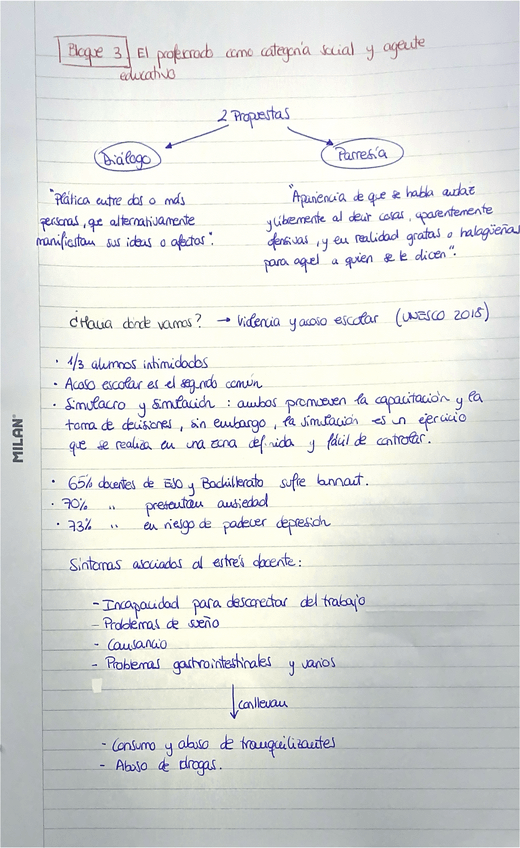 Bloque 3 El profesorado como categoría social y agente
educativo
2 Propuestas
Diálogo
Parresía
"Plática entre dos o más
personas, que alternativamente
manifiestan sus ideas o afectos".
"Apariencia de que se habla audaz
y libremente al decir cosas, aparentemente
ofensivas, y en realidad gratas o halagüeñas
para aquel a quien se le dicen".
¿Hacia dónde vamos? → Violencia y acoso escolar (UNESCO 2018)
· 1/3 alumnos intimidados
· Acoso escolar es el segundo común
· Simulacro y Simulación : ambos promueven la capacitación y la
toma de decisiones, sin embargo, la simulación es un ejercicio
que se realiza en una zona definida y fácil de controlar.
· 65% docentes de ESO y Bachillerato sufre bornaut.
· 70% " presentan ansiedad
· 73% " en riesgo de padecer depresión
Síntomas asociados al estrés docente:
- Incapacidad para desconectar del trabajo
- Problemas de sueño
- Cansancio
- Problemas gastrointestinales y varios
conllevan
- Consumo y abuso de tranquilizantes
- Abuso de drogas.
MILAN®